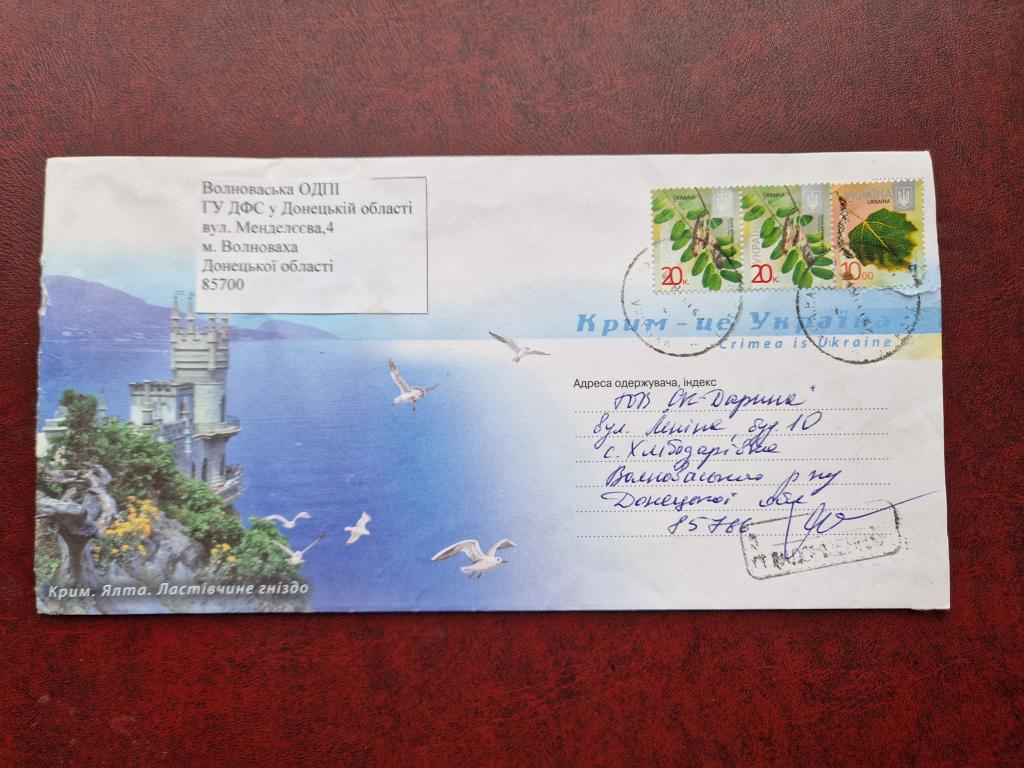 Волноваська ОДПІ
ГУ ДФС у Донецькій області
вул. Менделєєва,4
м. Волноваха
Донецької області
85700
УКРАЇНА
UKRAINA
20к.
УКРАЇНА
UKRAINA
20к.
УКРАЇНА
UKRAINA
10.00
Крим - це Україна
Crimea is Ukraine
Адреса одержувача, індекс
ТОВ "СК-Дарина"
вул. Леніна, буд. 10
с. Хлібодарівка
Волноваського р-ну
Донецької обл
85786
Крим. Ялта. Ластівчине гніздо